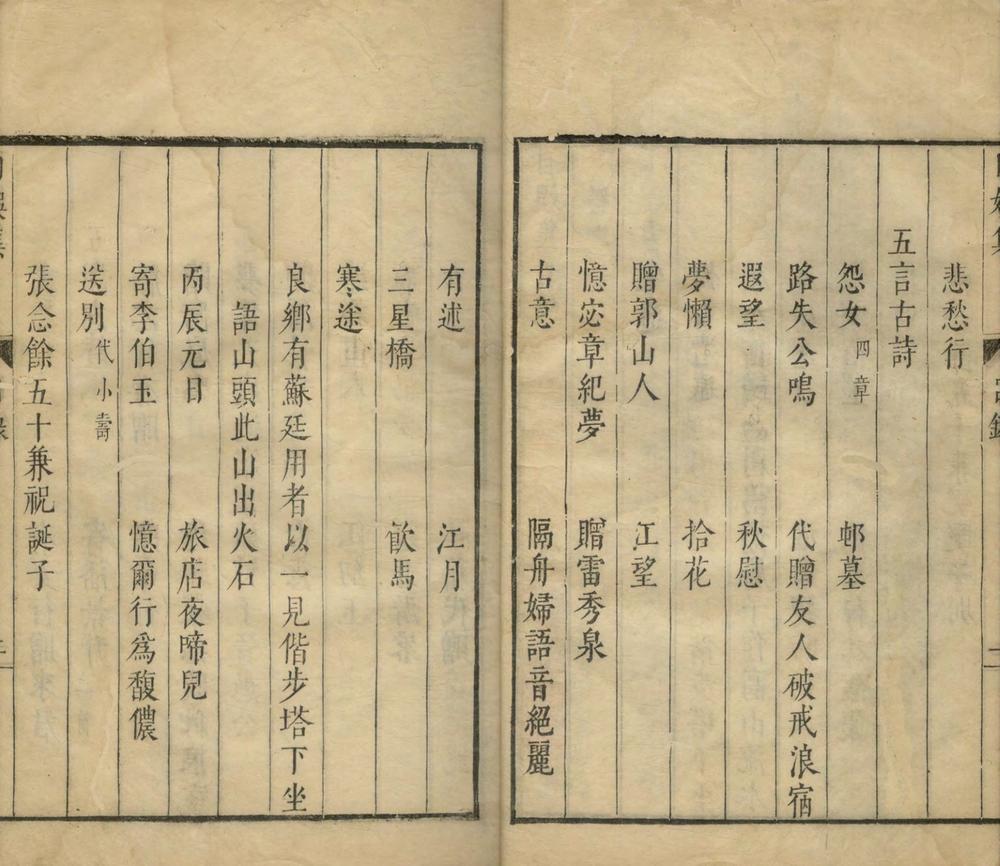 悲愁行
五言古詩
怨女 四章 邨墓
路失公鳴 代贈友人破戒浪宿
遐望 秋慰
夢懶 拾花
贈郭山人 江望
憶宓章紀夢 贈雷秀泉
古意 隔舟婦語音絕麗
有述 江月
三星橋 飲馬
寒途
良鄉有蘇廷用者以一見偕步塔下坐
語山頭此山出火石
丙辰元日 旅店夜啼兒
寄李伯玉 憶爾行爲馥儂
送別 代小壽
張念餘五十兼祝誕子